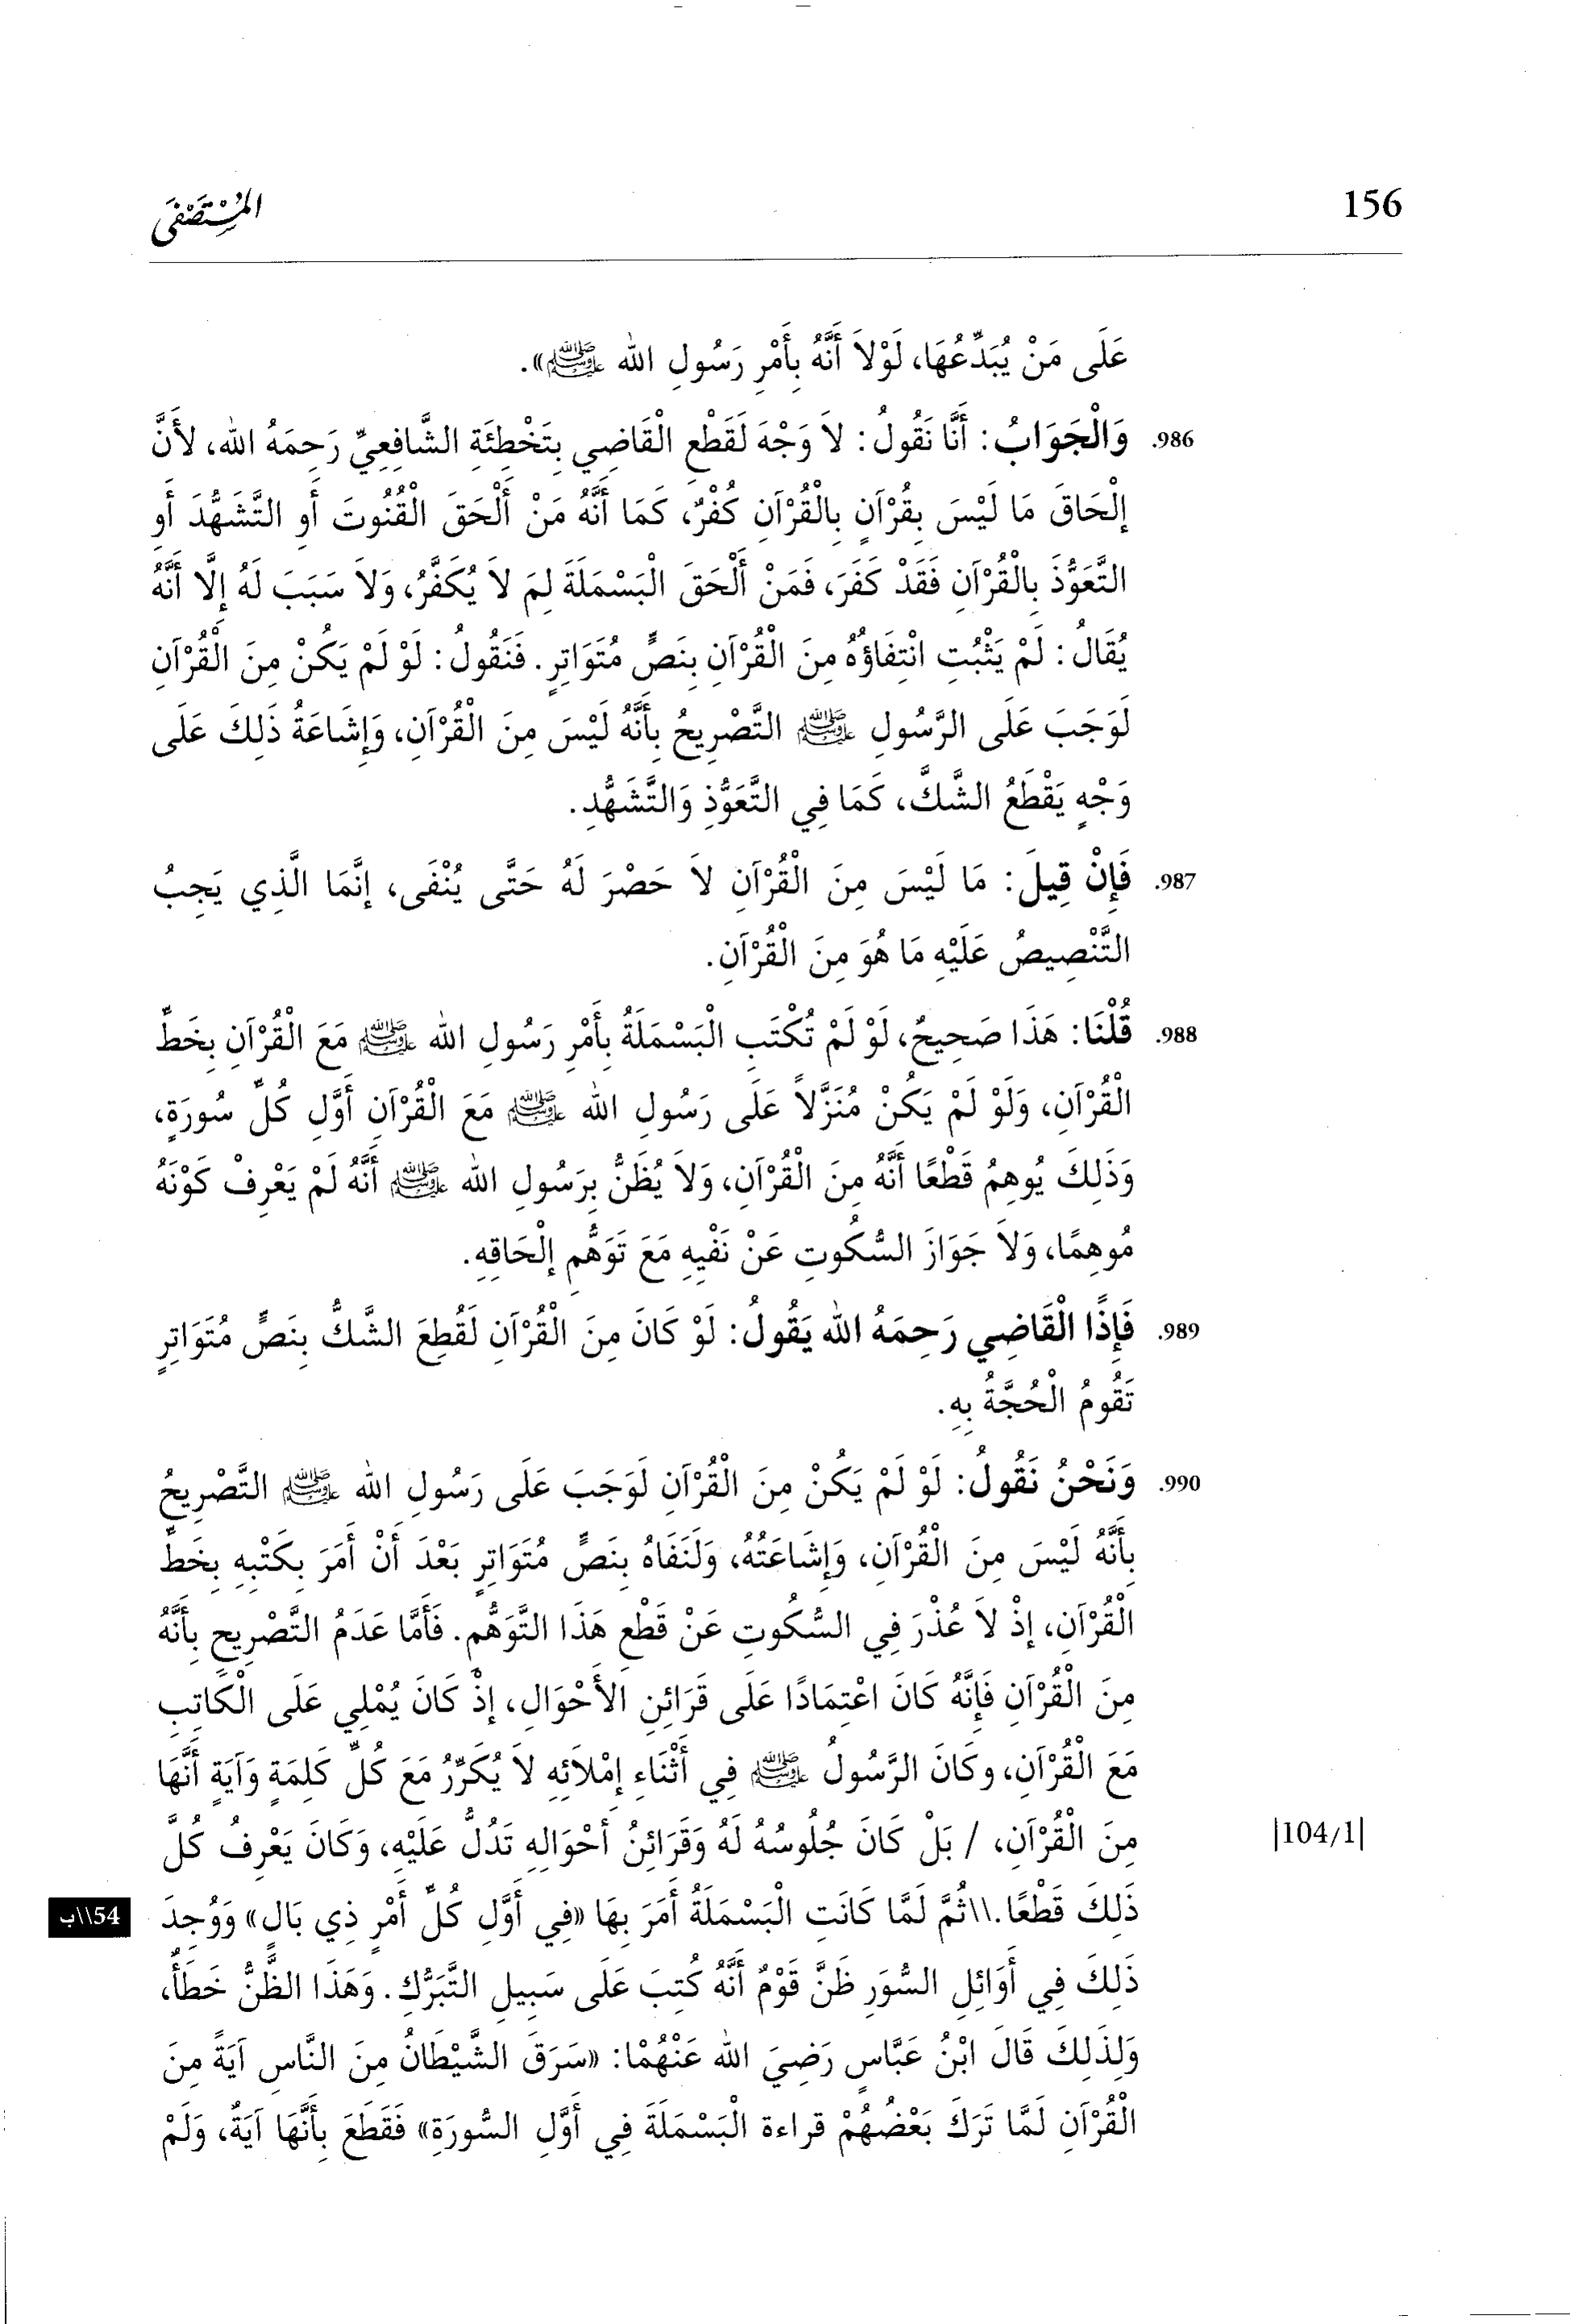 156
المُسْتَصْفَى
عَلَى مَنْ يُبَدِّعُهَا، لَوْلاَ أَنَّهُ بِأَمْرِ رَسُولِ الله ﷺ».
986. وَالْجَوَابُ: أَنَّا نَقُولُ: لاَ وَجْهَ لَقَطْعِ الْقَاضِي بِتَخْطِئَةِ الشَّافِعِيِّ رَحِمَهُ الله، لأَنَّ
إِلْحَاقَ مَا لَيْسَ بِقُرْآنٍ بِالْقُرْآنِ كُفْرٌ، كَمَا أَنَّهُ مَنْ أَلْحَقَ الْقُنُوتَ أَوِ التَّشَهُّدَ أَوِ
التَّعَوُّذَ بِالْقُرْآنِ فَقَدْ كَفَرَ، فَمَنْ أَلْحَقَ الْبَسْمَلَةَ لِمَ لاَ يُكَفَّرُ، وَلاَ سَبَبَ لَهُ إِلَّا أَنَّهُ
يُقَالُ: لَمْ يَثْبُتِ انْتِفَاؤُهُ مِنَ الْقُرْآنِ بِنَصٍّ مُتَوَاتِرٍ. فَنَقُولُ: لَوْ لَمْ يَكُنْ مِنَ الْقُرْآنِ
لَوَجَبَ عَلَى الرَّسُولِ ﷺ التَّصْرِيحُ بِأَنَّهُ لَيْسَ مِنَ الْقُرْآنِ، وَإِشَاعَةُ ذَلِكَ عَلَى
وَجْهٍ يَقْطَعُ الشَّكَّ، كَمَا فِي التَّعَوُّذِ وَالتَّشَهُّدِ.
987. فَإِنْ قِيلَ: مَا لَيْسَ مِنَ الْقُرْآنِ لاَ حَصْرَ لَهُ حَتَّى يُنْفَى، إِنَّمَا الَّذِي يَجِبُ
التَّنْصِيصُ عَلَيْهِ مَا هُوَ مِنَ الْقُرْآنِ.
988. قُلْنَا: هَذَا صَحِيحٌ، لَوْ لَمْ تُكْتَبِ الْبَسْمَلَةُ بِأَمْرِ رَسُولِ الله ﷺ مَعَ الْقُرْآنِ بِخَطِّ
الْقُرْآنِ، وَلَوْ لَمْ يَكُنْ مُنَزَّلاً عَلَى رَسُولِ الله ﷺ مَعَ الْقُرْآنِ أَوَّلِ كُلِّ سُورَةٍ،
وَذَلِكَ يُوهِمُ قَطْعًا أَنَّهُ مِنَ الْقُرْآنِ، وَلاَ يُظَنُّ بِرَسُولِ الله ﷺ أَنَّهُ لَمْ يَعْرِفْ كَوْنَهُ
مُوهِمًا، وَلاَ جَوَازَ السُّكُوتِ عَنْ نَفْيِهِ مَعَ تَوَهُّمِ إِلْحَاقِهِ.
989. فَإِذًا الْقَاضِي رَحِمَهُ الله يَقُولُ: لَوْ كَانَ مِنَ الْقُرْآنِ لَقُطِعَ الشَّكُّ بِنَصٍّ مُتَوَاتِرٍ
تَقُومُ الْحُجَّةُ بِهِ.
990. وَنَحْنُ نَقُولُ: لَوْ لَمْ يَكُنْ مِنَ الْقُرْآنِ لَوَجَبَ عَلَى رَسُولِ الله ﷺ التَّصْرِيحُ
بِأَنَّهُ لَيْسَ مِنَ الْقُرْآنِ، وَإِشَاعَتُهُ، وَلَنَفَاهُ بِنَصٍّ مُتَوَاتِرٍ بَعْدَ أَنْ أَمَرَ بِكَتْبِهِ بِخَطِّ
الْقُرْآنِ، إِذْ لاَ عُذْرَ فِي السُّكُوتِ عَنْ قَطْعِ هَذَا التَّوَهُّمِ. فَأَمَّا عَدَمُ التَّصْرِيحِ بِأَنَّهُ
مِنَ الْقُرْآنِ فَإِنَّهُ كَانَ اعْتِمَادًا عَلَى قَرَائِنِ الأَحْوَالِ، إِذْ كَانَ يُمْلِي عَلَى الْكَاتِبِ
مَعَ الْقُرْآنِ، وكَانَ الرَّسُولُ ﷺ فِي أَثْنَاءِ إِمْلاَئِهِ لاَ يُكَرِّرُ مَعَ كُلِّ كَلِمَةٍ وَآيَةٍ أَنَّهَا
مِنَ الْقُرْآنِ، / بَلْ كَانَ جُلُوسُهُ لَهُ وَقَرَائِنُ أَحْوَالِهِ تَدُلُّ عَلَيْهِ، وَكَانَ يَعْرِفُ كُلَّ
|104/1|
ذَلِكَ قَطْعًا.\\ثُمَّ لَمَّا كَانَتِ الْبَسْمَلَةُ أَمَرَ بِهَا «فِي أَوَّلِ كُلِّ أَمْرٍ ذِي بَالٍ» وَوُجِدَ
54\\ب
ذَلِكَ فِي أَوَائِلِ السُّوَرِ ظَنَّ قَوْمٌ أَنَّهُ كُتِبَ عَلَى سَبِيلِ التَّبَرُّكِ. وَهَذَا الظَّنُّ خَطَأٌ،
وَلِذَلِكَ قَالَ ابْنُ عَبَّاسٍ رَضِيَ الله عَنْهُمْا: «سَرَقَ الشَّيْطَانُ مِنَ النَّاسِ آيَةً مِنَ
الْقُرْآنِ لَمَّا تَرَكَ بَعْضُهُمْ قراءة الْبَسْمَلَةَ فِي أَوَّلِ السُّورَةِ» فَقَطَعَ بِأَنَّهَا آيَةٌ، وَلَمْ